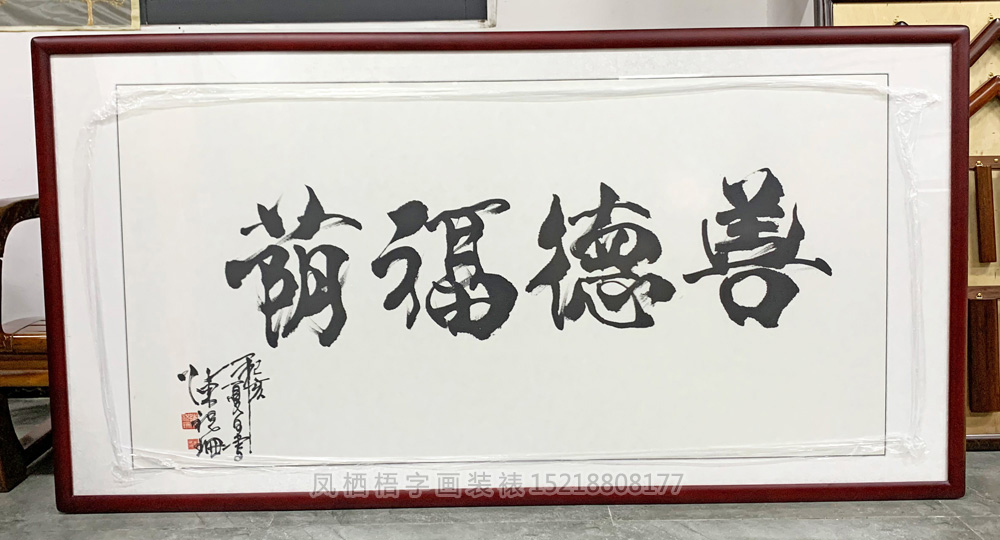 善德福荫
己亥
夏日書
凤栖梧字画装裱15218808177